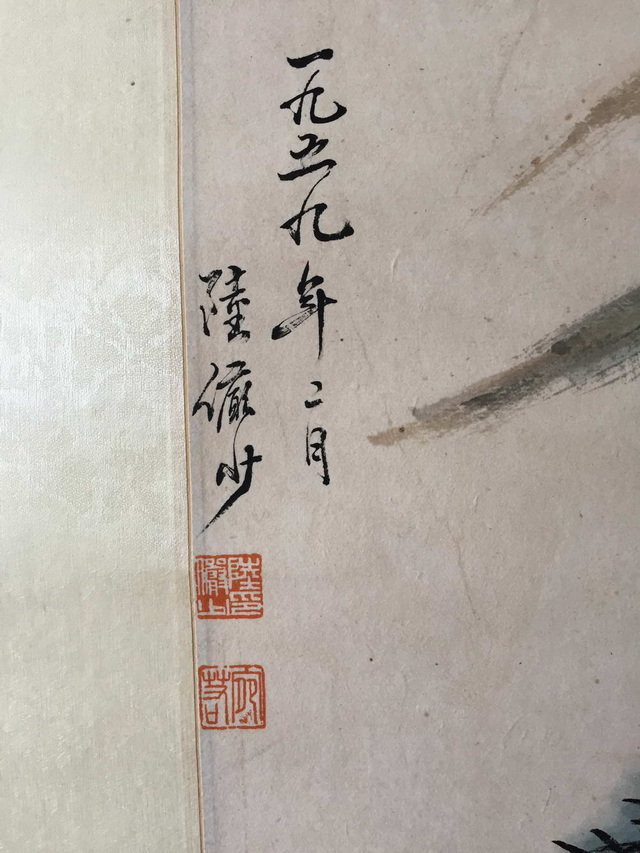 一九五九年二月
陸儼少
陸印儼少
宛若